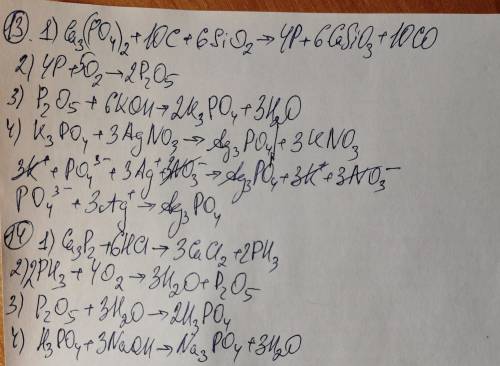 13. 1) Ca₃(PO₄)₂ + 10C + 6SiO₂ → 4P + 6CaSiO₃ + 10CO
2) 4P + 5O₂ → 2P₂O₅
3) P₂O₅ + 6KOH → 2K₃PO₄ + 3H₂O
4) K₃PO₄ + 3AgNO₃ → Ag₃PO₄↓ + 3KNO₃
3K⁺ + PO₄³⁻ + 3Ag⁺ + 3NO₃⁻ → Ag₃PO₄ + 3K⁺ + 3NO₃⁻
PO₄³⁻ + 3Ag⁺ → Ag₃PO₄
14. 1) Ca₃P₂ + 6HCl → 3CaCl₂ + 2PH₃
2) 2PH₃ + 4O₂ → 3H₂O + P₂O₅
3) P₂O₅ + 3H₂O → 2H₃PO₄
4) H₃PO₄ + 3NaOH → Na₃PO₄ + 3H₂O